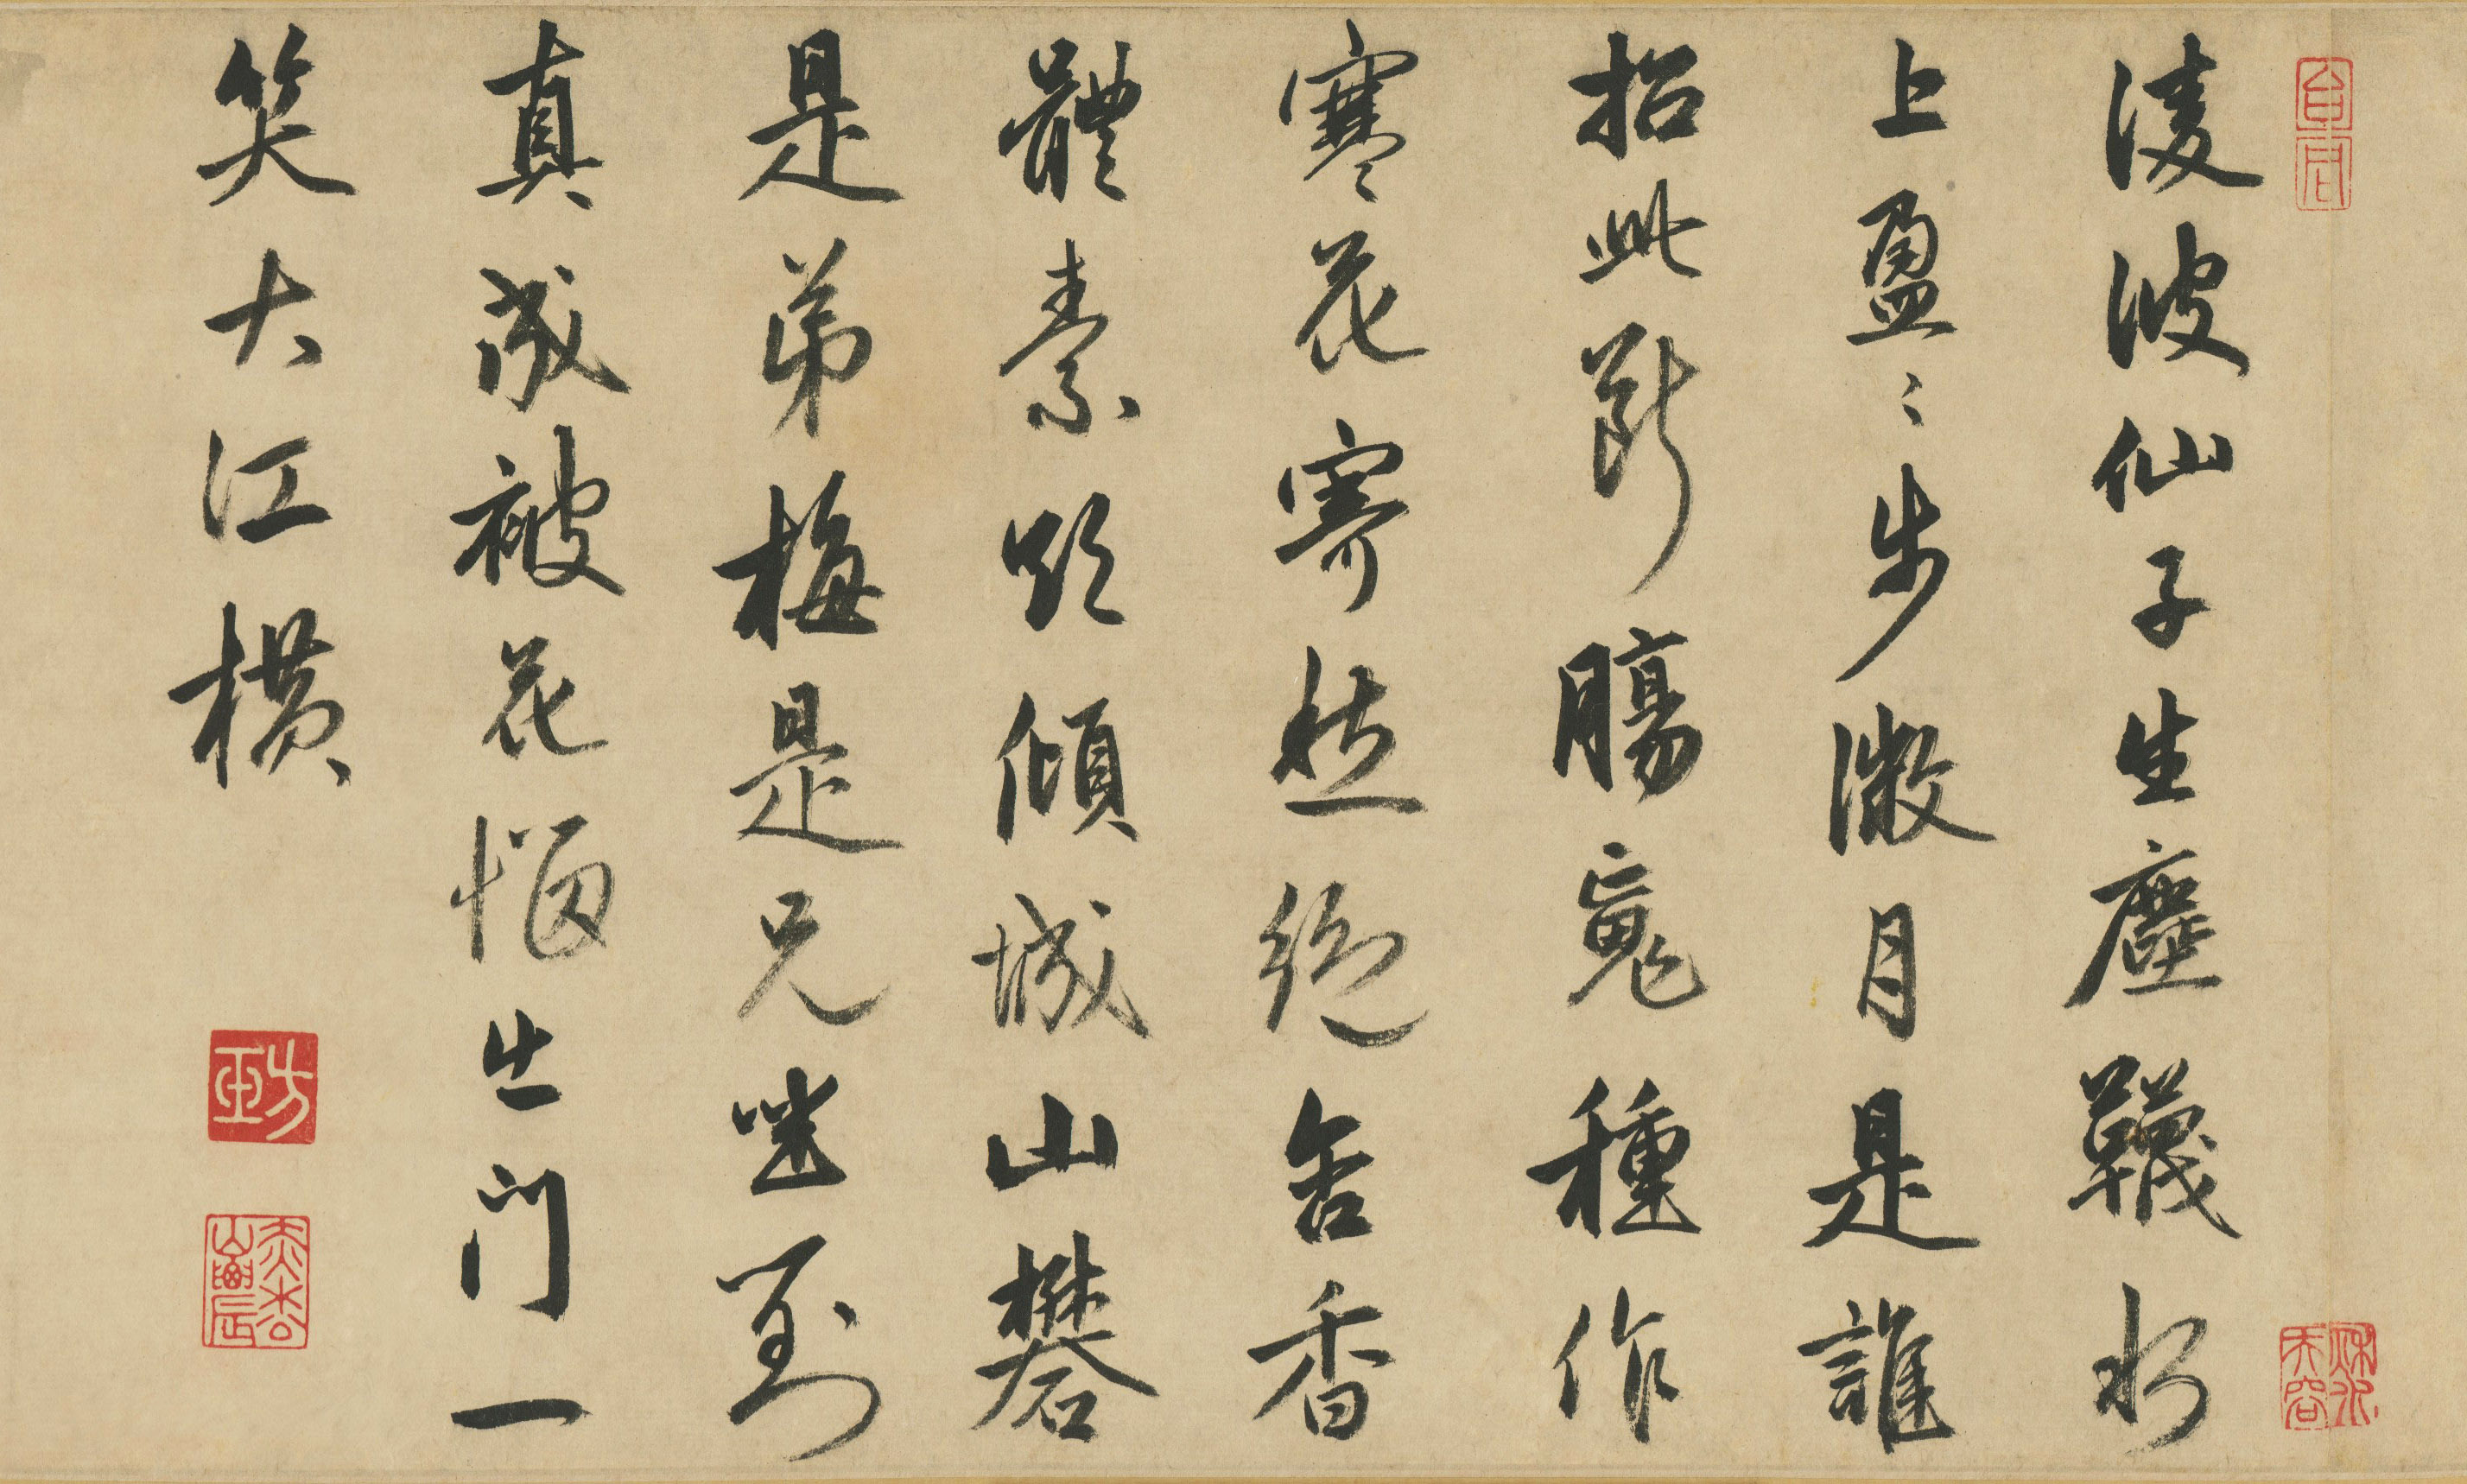 淩波仙子生塵韈水
上盈〻步微月是誰
招此斷腸魂種作
寒花寄愁絕含香
體素欲傾城山礬
是弟梅是兄坐對
真成被花惱出門一
笑大江橫